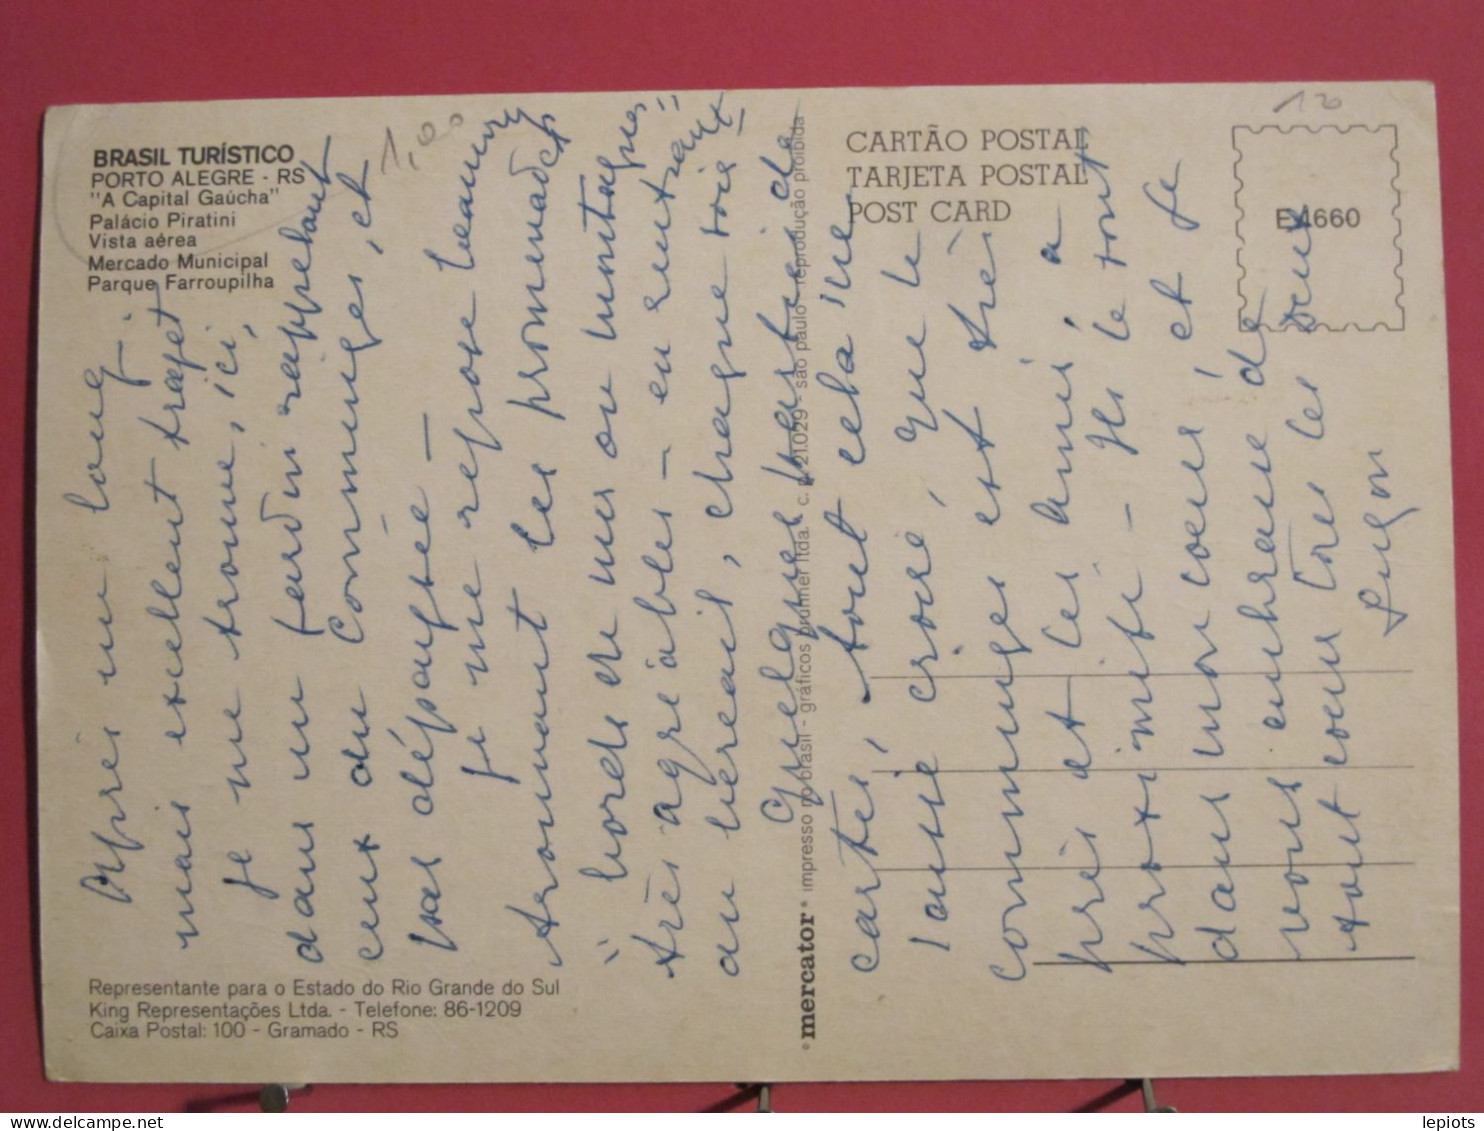 BRASIL TURÍSTICO
PORTO ALEGRE - RS
"A Capital Gaúcha"
Palácio Piratini
Vista aérea
Mercado Municipal
Parque Farroupilha
1,00
Après un long,
mais excellent trajet
je me trouve, ici,
dans un jardin rappelant
ceux du Comminges, et
pas dépaysée —
je me repose beaucoup
savourant les promenades
"bords en mer ou montagnes"
très agréables — en rentrant
au bercail, chaque fois
Quelques parties de
cartes, tout cela me
laisse croire, que le
Comminges est très
près et les amis, à
proximité — Ils le sont
dans mon coeur, et je
vous embrasse de
tout coeur tous les deux
Representante para o Estado do Rio Grande do Sul
King Representações Ltda. - Telefone: 86-1209
Caixa Postal: 100 - Gramado - RS
mercator impresso no brasil - gráficos brunner ltda. c. p. 21.029 - são paulo - reprodução proibida
CARTÃO POSTAL
TARJETA POSTAL
POST CARD
E-4660
lepiots